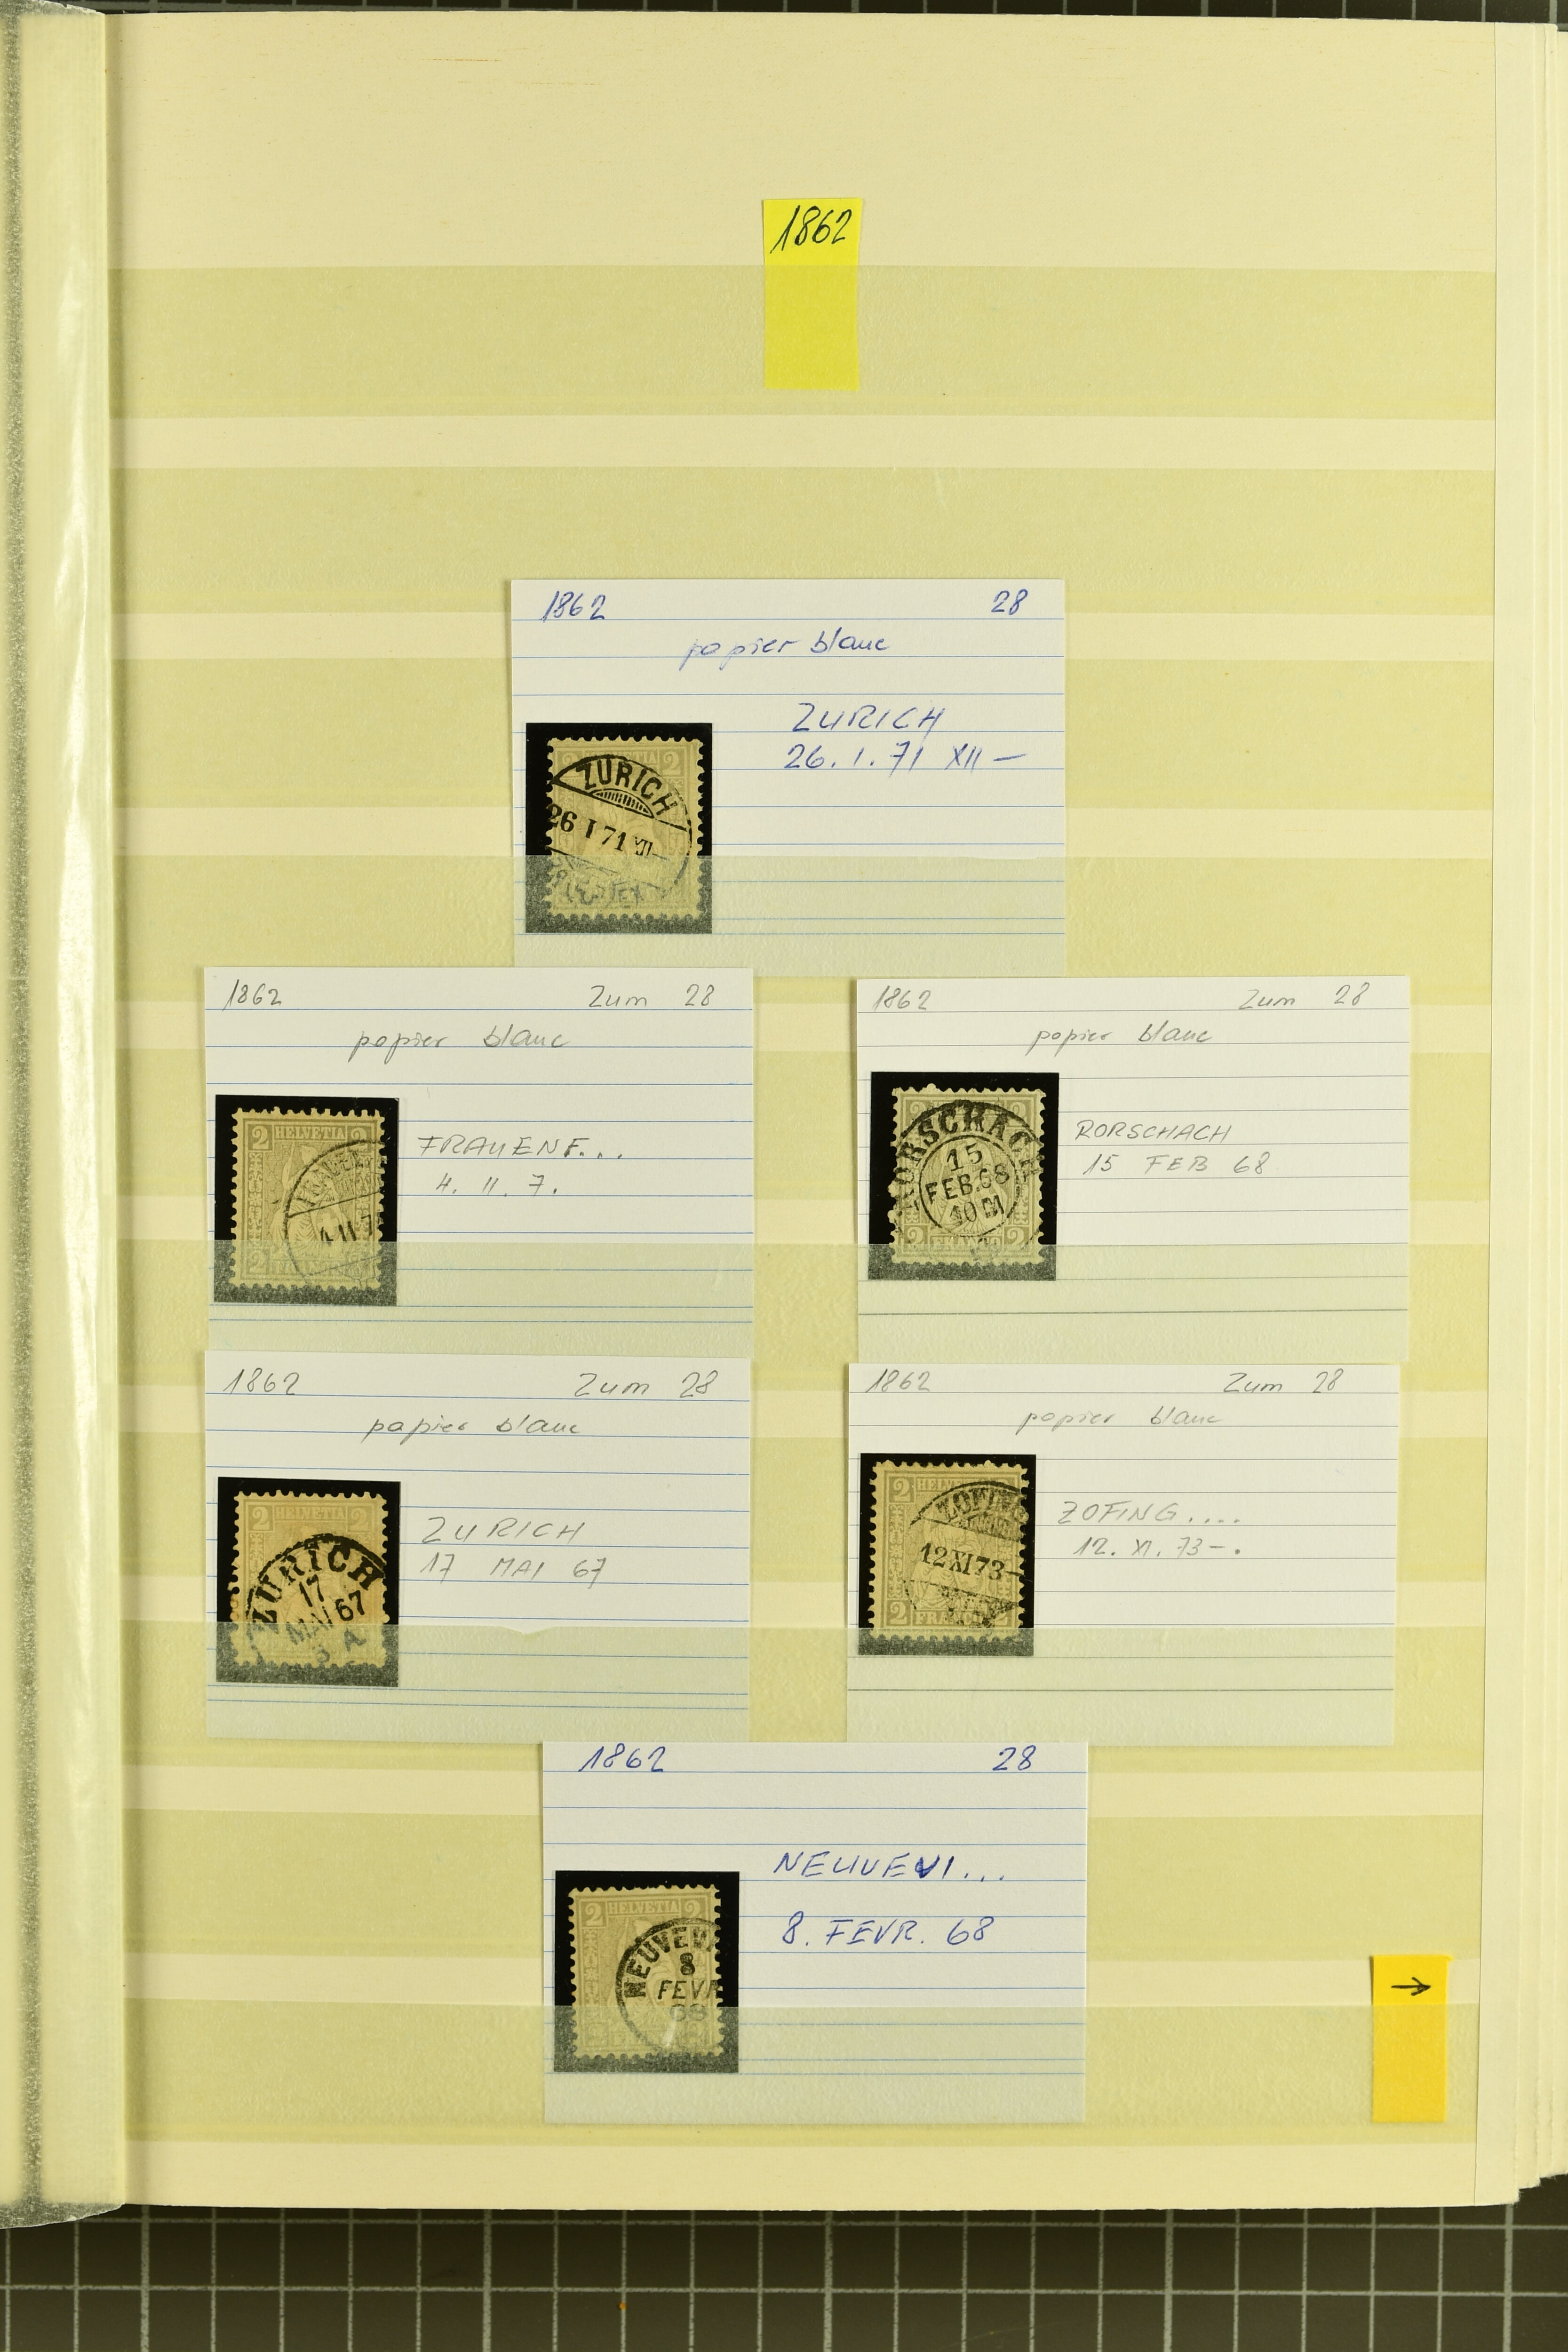 1862
1862 28
papier blanc
ZURICH
26. 1. 71 XII —
ZURICH
26 I 71 XII—
1862 Zum 28
papier blanc
FRAUENF...
4. II. 7.
2 HELVETIA 2
4 II 7
2
1862 Zum 28
papier blanc
RORSCHACH
15 FEB 68
RORSCHACH
15
FEB.68
10 M
2 FRANCO 2
1862 Zum 28
papier blanc
ZURICH
17 MAI 67
2 HELVETIA 2
ZURICH
17
MAI 67
1862 Zum 28
papier blanc
ZOFING....
12. XI. 73 —.
2
ZOFING
12 XI 73 —
2 FRANCO 2
1862 28
NEUVEVI...
8. FEVR. 68
2 HELVETIA 2
NEUVEVI
8
FEVR
68
→